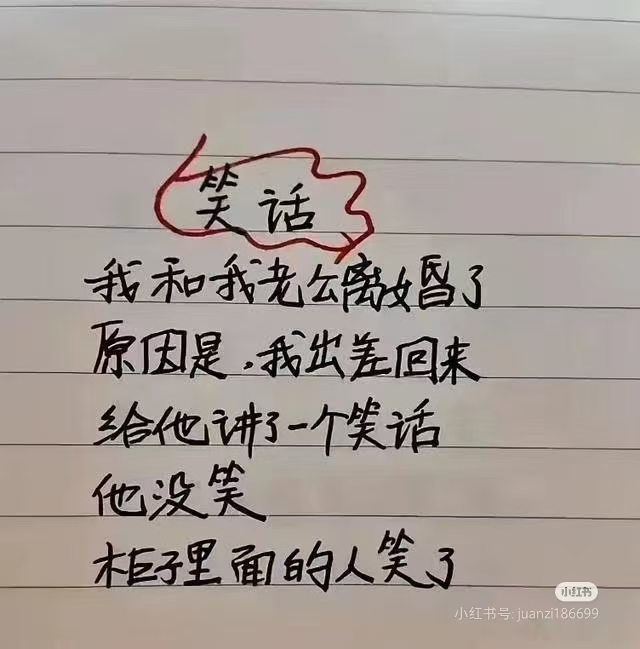 笑话
我和我老公离婚了
原因是,我出差回来
给他讲了一个笑话
他没笑
柜子里面的人笑了
小红书
小红书号: juanzi186699